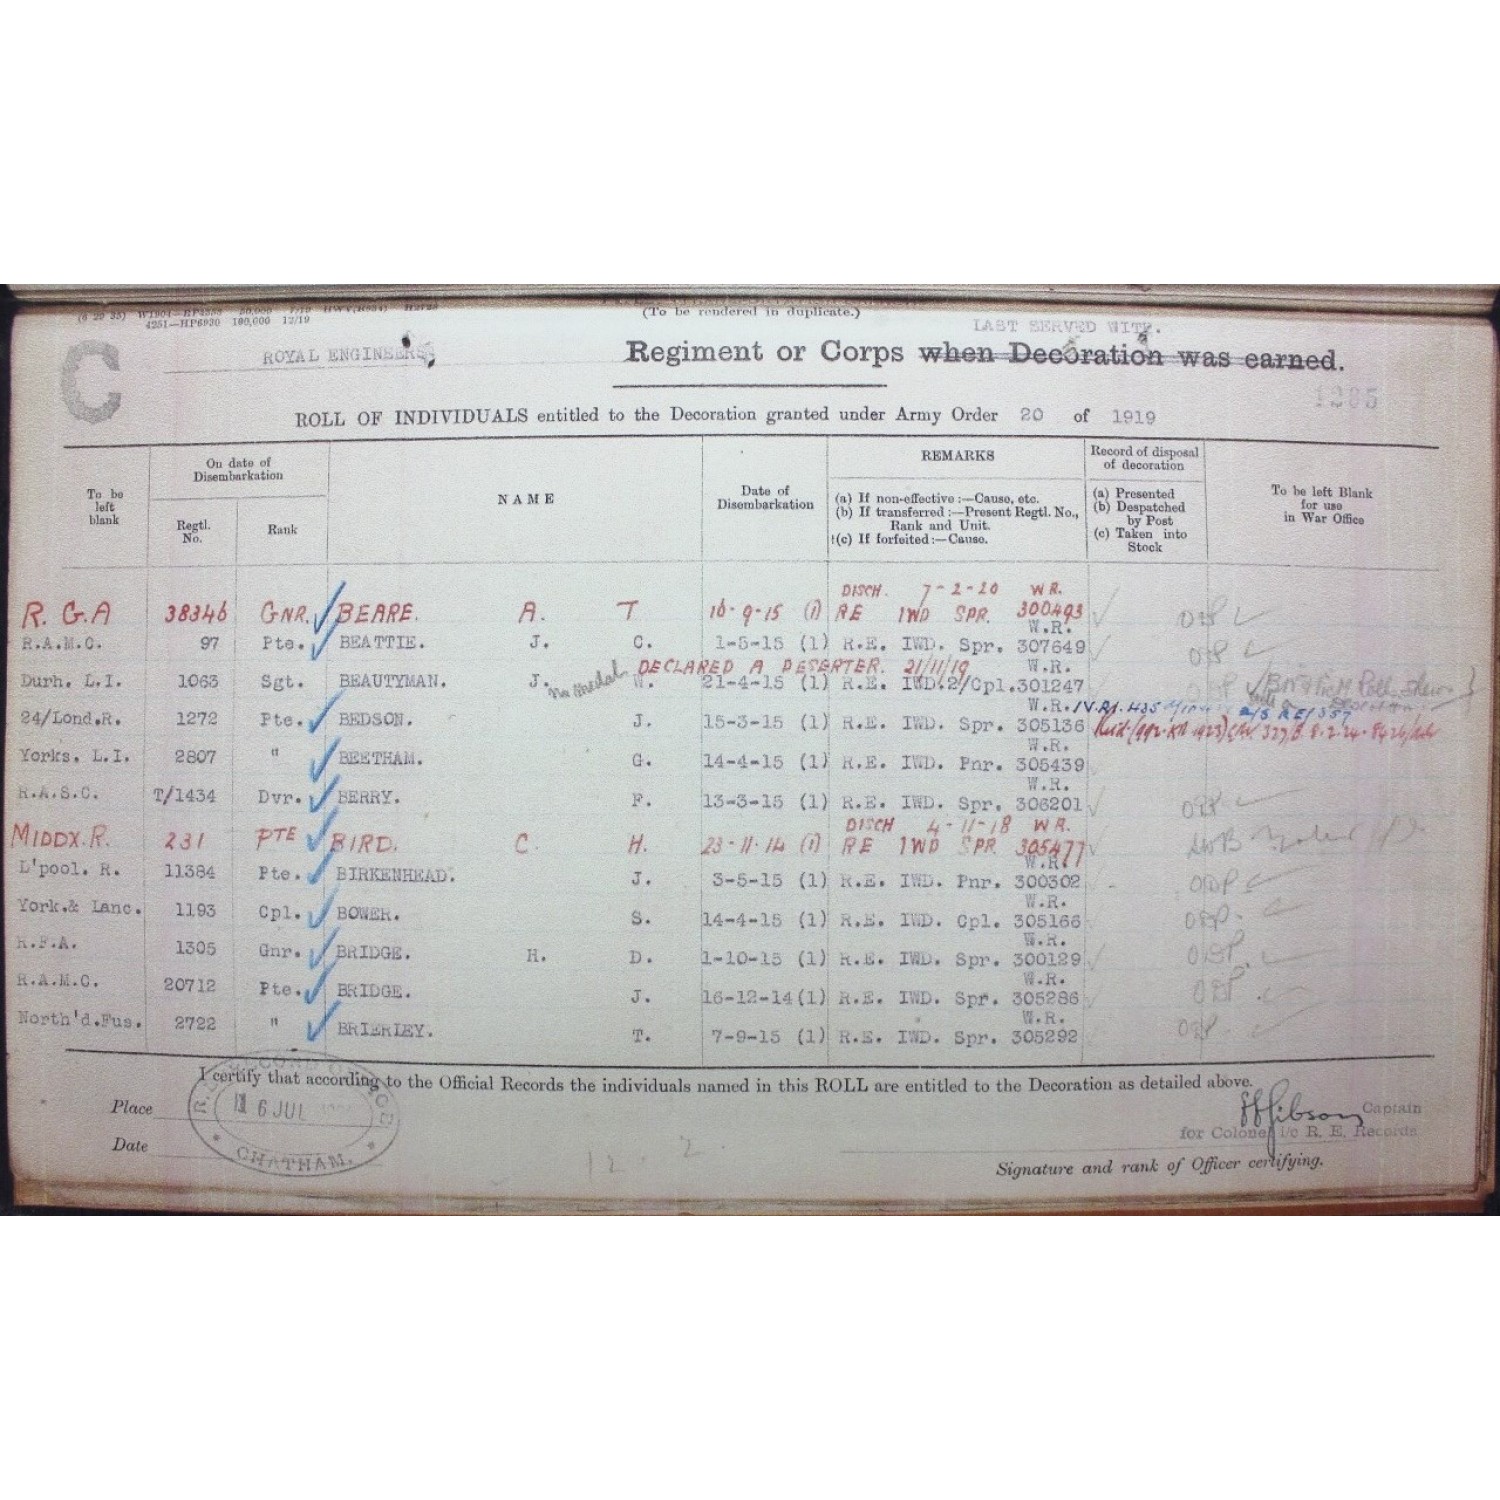 (6 29 35) W1901—RP4353 50,000 7/19
4251—HP6930 100,000 12/19
(To be rendered in duplicate.)
LAST SERVED WITH.
C
ROYAL ENGINEERS
Regiment or Corps when Decoration was earned.
1285
ROLL OF INDIVIDUALS entitled to the Decoration granted under Army Order 20 of 1919
To be left blank
On date of Disembarkation
Regtl. No.
Rank
NAME
Date of Disembarkation
REMARKS
(a) If non-effective :—Cause, etc.
(b) If transferred :—Present Regtl. No., Rank and Unit.
(c) If forfeited :—Cause.
Record of disposal of decoration
(a) Presented
(b) Despatched by Post
(c) Taken into Stock
To be left Blank for use in War Office
DISCH. 7-2-20 W.R.
R.G.A 38346 GNR. BEARE. A. T 16-9-15 (1) RE IWD SPR. 300493
W.R.
R.A.M.C. 97 Pte. BEATTIE. J. C. 1-5-15 (1) R.E. IWD. Spr. 307649
No Medal DECLARED A DESERTER. 21/11/19 W.R.
Durh. L.I. 1063 Sgt. BEAUTYMAN. J. W. 21-4-15 (1) R.E. IWD.2/Cpl.301247
W.R.
24/Lond.R. 1272 Pte. BEDSON. J. 15-3-15 (1) R.E. IWD. Spr. 305136
W.R.
Yorks. L.I. 2807 " BEETHAM. G. 14-4-15 (1) R.E. IWD. Pnr. 305439
W.R.
R.A.S.C. T/1434 Dvr. BERRY. F. 13-3-15 (1) R.E. IWD. Spr. 306201
DISCH 4-11-18 W.R.
MIDDX.R. 231 PTE BIRD. C. H. 23-11-14 (1) RE IWD SPR 305477
W.R.
L'pool. R. 11384 Pte. BIRKENHEAD. J. 3-5-15 (1) R.E. IWD. Pnr. 300302
W.R.
York.& Lanc. 1193 Cpl. BOWER. S. 14-4-15 (1) R.E. IWD. Cpl. 305166
W.R.
R.F.A. 1305 Gnr. BRIDGE. H. D. 1-10-15 (1) R.E. IWD. Spr. 300129
W.R.
R.A.M.C. 20712 Pte. BRIDGE. J. 16-12-14(1) R.E. IWD. Spr. 305286
W.R.
North'd.Fus. 2722 " BRIERLEY. T. 7-9-15 (1) R.E. IWD. Spr. 305292
I certify that according to the Official Records the individuals named in this ROLL are entitled to the Decoration as detailed above.
Place
6 JUL
CHATHAM.
Gibson Captain
for Colonel i/c R. E. Records
Date
12. 2
Signature and rank of Officer certifying.